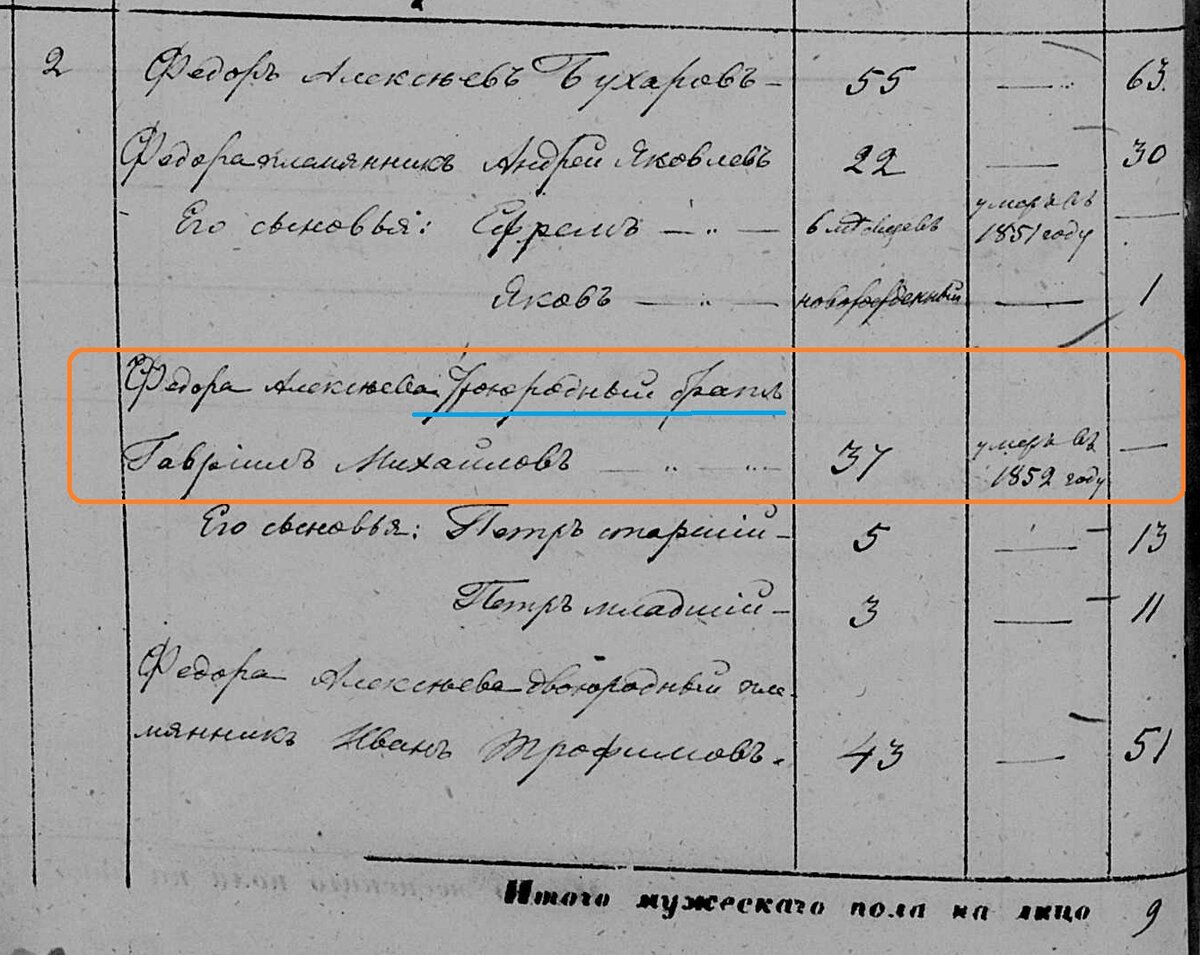 2 Федоръ Алексѣевъ Бухаровъ — 55 — " 63.
Федора племянникъ Андрей Яковлевъ 22 — 30
Его сыновья: Ефремъ — " — 6 мѣсяцевъ умеръ въ 1851 году —
Яковъ — " — новорожденный — 1
Федора Алексѣева двоюродный братъ
Гаврiилъ Михайловъ — " — " 37 умеръ въ 1852 году —
Его сыновья: Петръ старшiй — 5 — 13
Петръ младшiй — 3 — 11
Федора Алексѣева двоюродный пле-
мянникъ Иванъ Трофимовъ. 43 — 51
Итого мужескаго пола на лицо 9